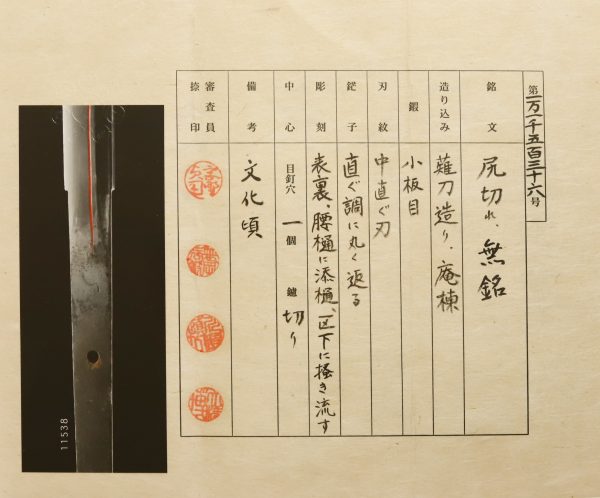 第一万一千五百三十六号
銘文 尻切れ、無銘
造り込み 薙刀造り、庵棟
鍛 小板目
刃紋 中直ぐ刃
鋩子 直ぐ調に丸く返る
彫刻 表裏、腰樋に添樋、区下に掻き流す
中心 目釘穴 一個 鑢 切り
備考 文化頃
審査員捺印
11538